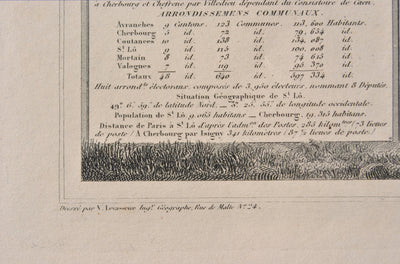 à Cherbourg et Chefrene par Villedieu dépendant du Consistoire de Caen.
ARRONDISSEMENS COMMUNAUX.
Avranches 9 Cantons. 123 Communes. 113,600 Habitants.
Cherbourg 5 id. 72 id. 79,634 id.
Coutances 10 id. 138 id. 134,087 id.
St Lô 9 id. 115 id. 100,008 id.
Mortain 8 id. 73 id. 74,615 id.
Valognes 7 id. 119 id. 95,370 id.
Totaux 48 id. 640 id. 597,334 id.
Huit arrondts électoraux composés de 3,950 électeurs, nommant 8 Députés.
Situation Géographique de St Lô.
49°. 6'. 59". de latitude Nord. — 3°. 25'. 55". de longitude occidentale.
Population de St Lô 9,065 habitans — Cherbourg, 19,315 habitans.
Distance de Paris à St Lô d'après l'admon des Postes, 285 kilomtres / 73 lieues
de poste / A Cherbourg par Isigny 341 kilomètres / 87 ½ lieues de poste /
Dressé par V. Levasseur Ingr. Géographe, Rue de Malte No. 24.